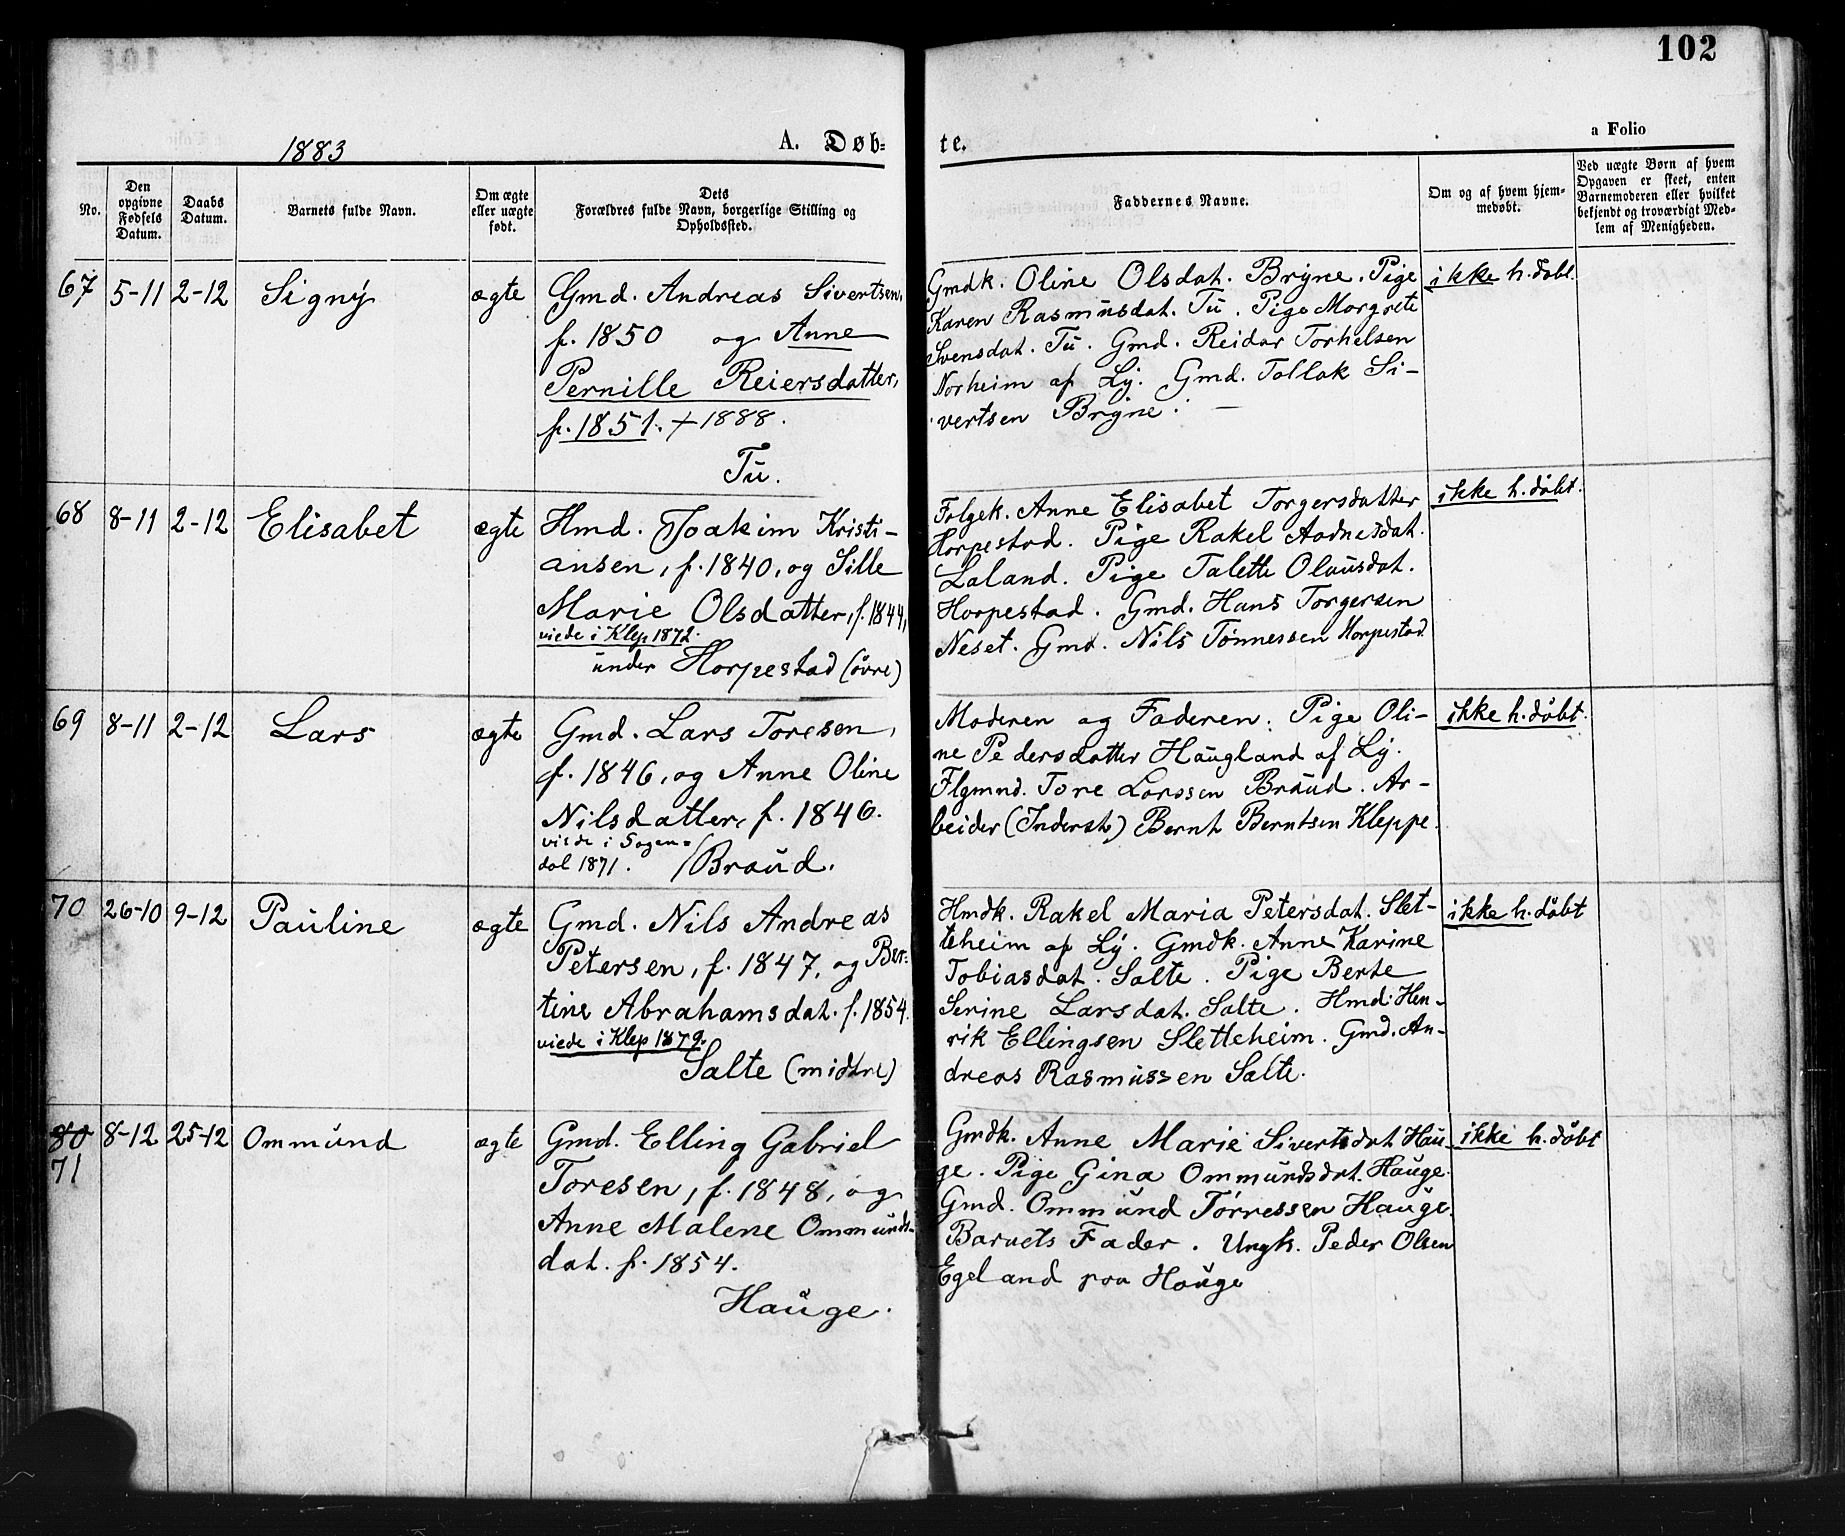 102
1883
A. Døb-
te.
a Folio
No.
Den
opgivne
Fødsels
Datum.
Daabs
Datum.
Barnets fulde Navn.
Om ægte
eller uægte
født.
Dets
Forældres fulde Navn, borgerlige Stilling og
Opholdssted.
Faddernes Navne.
Om og af hvem hjem-
medøbt.
Ved uægte Børn af hvem
Opgaven er skeet, enten
Barnemoderen eller hvilket
bekjendt og troværdigt Med-
lem af Menigheden.
67 5-11 2-12 Signy ægte
Gmd. Andreas Sivertsen,
f. 1850 og Anne
Pernille Reiersdatter,
f. 1851. + 1888.
Tu.
Gmdk. Oline Olsdat. Bryne. Pige
Karen Rasmusdat. Tu. Pige Margrete
Svensdat. Tu. Gmd. Reidar Torkelsen
Norheim af Ly. Gmd. Tollak Si-
vertsen Bryne. —
ikke h. døbt.
68 8-11 2-12 Elisabet ægte
Hmd. Joakim Kristi-
ansen, f. 1840, og Sille
Marie Olsdatter, f. 1844,
viede i Klep 1872.
under Horpestad (øvre)
Folgek. Anne Elisabet Torgersdatter
Horpestad. Pige Rakel Aadnesdat.
Laland. Pige Talette Olausdat.
Horpestad. Gmd. Hans Torgersen
Neset. Gmd. Nils Tønnessen Horpestad
ikke h. døbt.
69 8-11 2-12 Lars ægte
Gmd. Lars Toresen,
f. 1846, og Anne Oline
Nilsdatter, f. 1846.
viede i Sogen-
dal 1871. / Braud.
Moderen og Faderen. Pige Oli-
ne Pedersdatter Haugland af Ly.
Flgmnd. Tore Larssen Braud. Ar-
beider (Inderst) Bernt Berntsen Kleppe.
ikke h. døbt.
70 26-10 9-12 Pauline ægte
Gmd. Nils Andreas
Petersen, f. 1847, og Ber-
tine Abrahamsdat. f. 1854.
viede i Klep 1879.
Salte (midtre)
Hmdk. Rakel Maria Petersdat. Slet-
teheim af Ly. Gmdk. Anne Karine
Tobiasdat. Salte. Pige Berte
Serine Larsdat. Salte. Hmd. Hen-
rik Ellingsen Sletteheim. Gmd. An-
dreas Rasmussen Salte.
ikke h. døbt
80 8-12 25-12 Ommund ægte
71
Gmd. Elling Gabriel
Toresen, f. 1848, og
Anne Malene Ommunds-
dat. f. 1854.
Hauge.
Gmdk. Anne Marie Sivertsdat Hau-
ge. Pige Gina Ommundsdat. Hauge.
Gmd. Ommund Tørressen Hauge.
Barnets Fader. Ungk. Peder Olsen
Egeland paa Hauge
ikke h. døbt